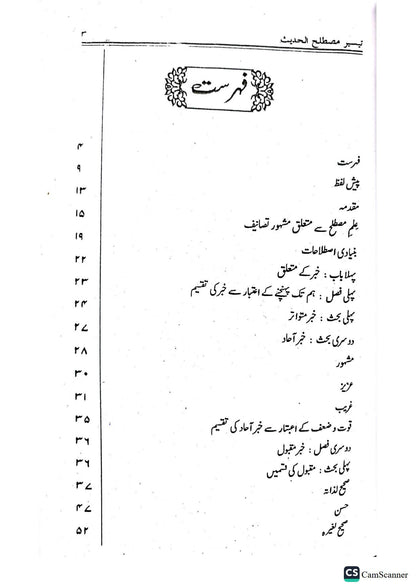 تیسیر مصطلح الحدیث ۳
فہرست
فہرست ۴
پیش لفظ ۹
مقدمہ ۱۳
علم مصطلح سے متعلق مشہور تصانیف ۱۵
بنیادی اصطلاحات ۱۹
پہلا باب : خبر کے متعلق ۲۲
پہلی فصل : ہم تک پہنچنے کے اعتبار سے خبر کی تقسیم ۲۳
پہلی بحث : خبر متواتر ۲۴
دوسری بحث : خبر آحاد ۲۷
مشہور ۲۸
عزیز ۳۰
غریب ۳۱
قوت وضعف کے اعتبار سے خبر آحاد کی تقسیم ۳۵
دوسری فصل : خبر مقبول ۳۶
پہلی بحث : مقبول کی قسمیں ۳۶
صحیح لذاتہ ۳۷
حسن ۴۷
صحیح لغیرہ ۵۲
CS CamScanner